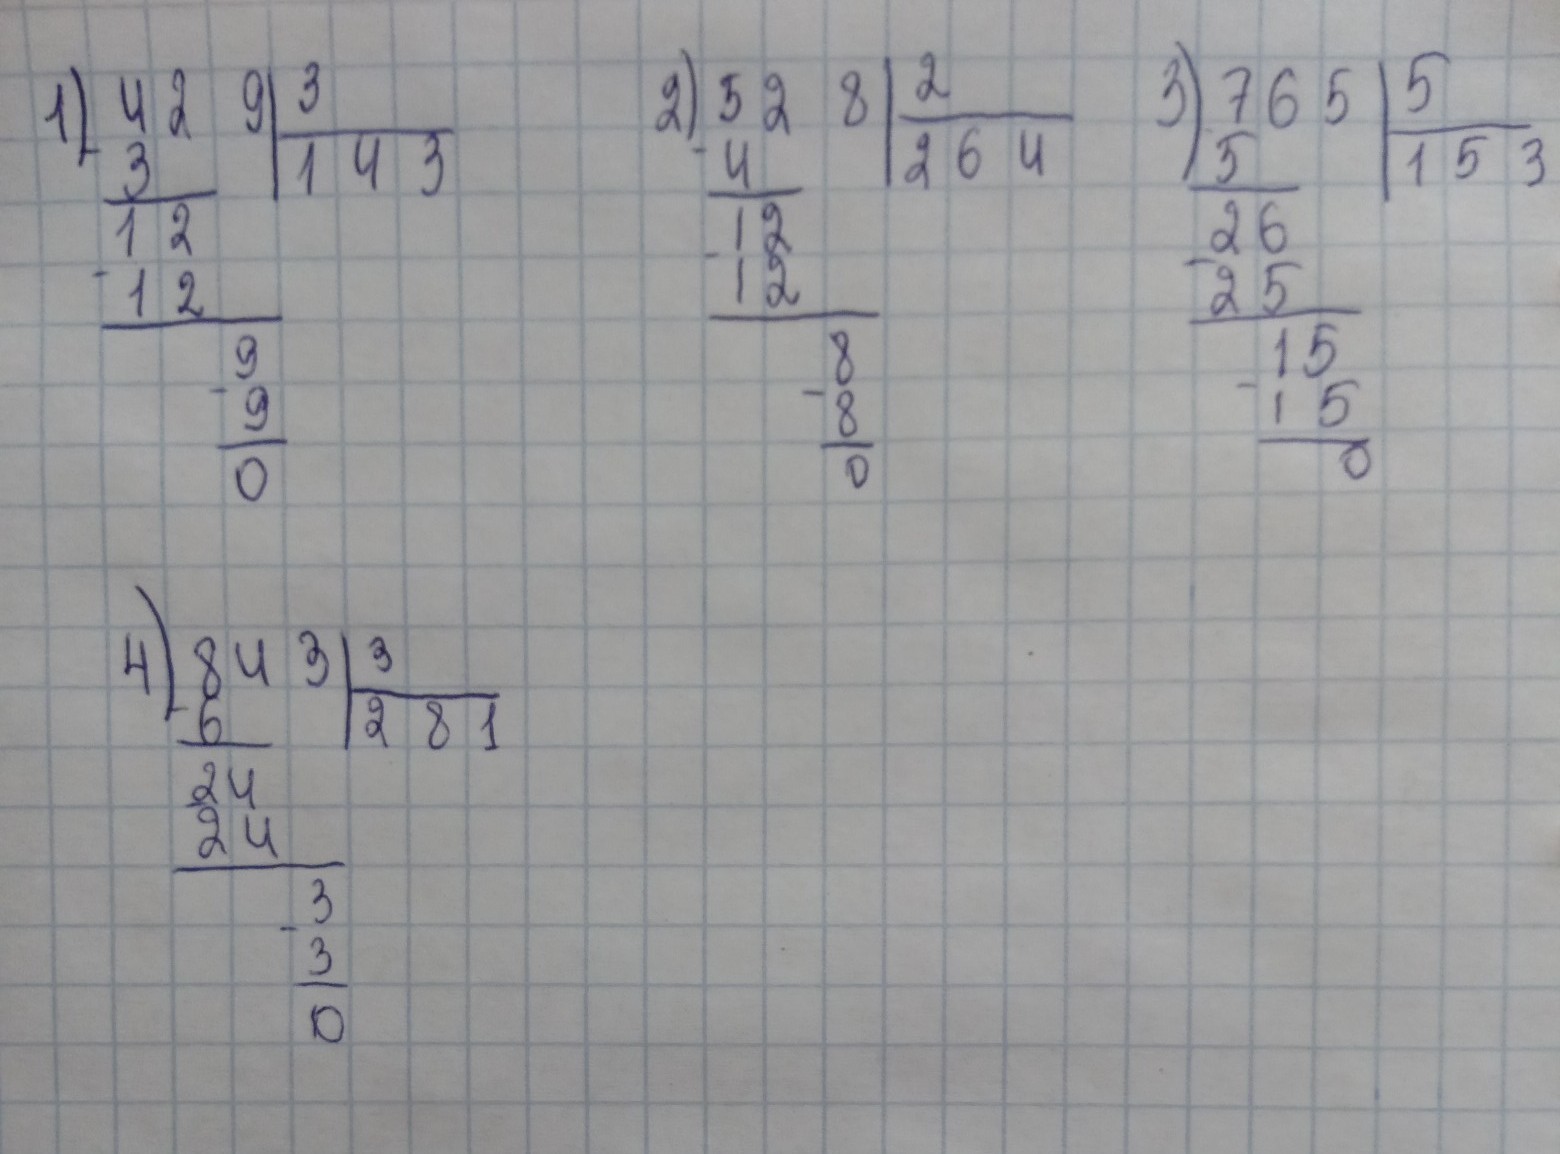 1) 429 | 3
- 3 | 143
12
- 12
9
- 9
0
2) 528 | 2
- 4 | 264
12
- 12
8
- 8
0
3) 765 | 5
5 | 153
26
- 25
15
- 15
0
4) 843 | 3
- 6 | 281
24
24
3
- 3
0